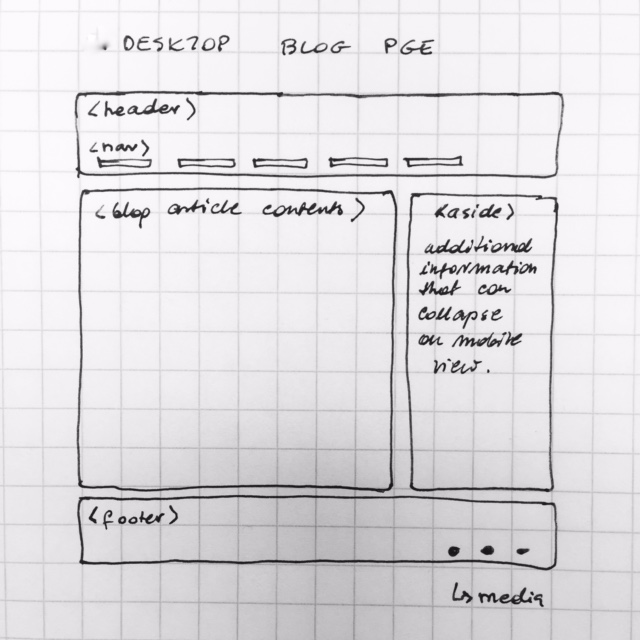 DESKTOP BLOG PGE
<header>
<nav>
<blog article contents>
<aside>
additional
information
that can
collapse
on mobile
view.
<footer>
↳ media